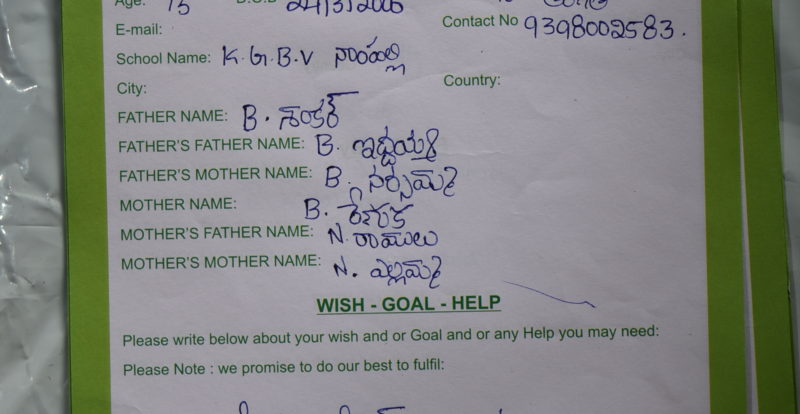 Age: 15
D.O.B 24/3/2006
E-mail:
Contact No 9398002583.
School Name: K.G.B.V నాంపల్లి
City: Country:
FATHER NAME: B. శంకర్
FATHER'S FATHER NAME: B.
FATHER'S MOTHER NAME: B. నర్సమ్మ
MOTHER NAME: B. రేణుక
MOTHER'S FATHER NAME: N. రాములు
MOTHER'S MOTHER NAME: N. ఎల్లమ్మ
WISH - GOAL - HELP
Please write below about your wish and or Goal and or any Help you may need:
Please Note : we promise to do our best to fulfil: